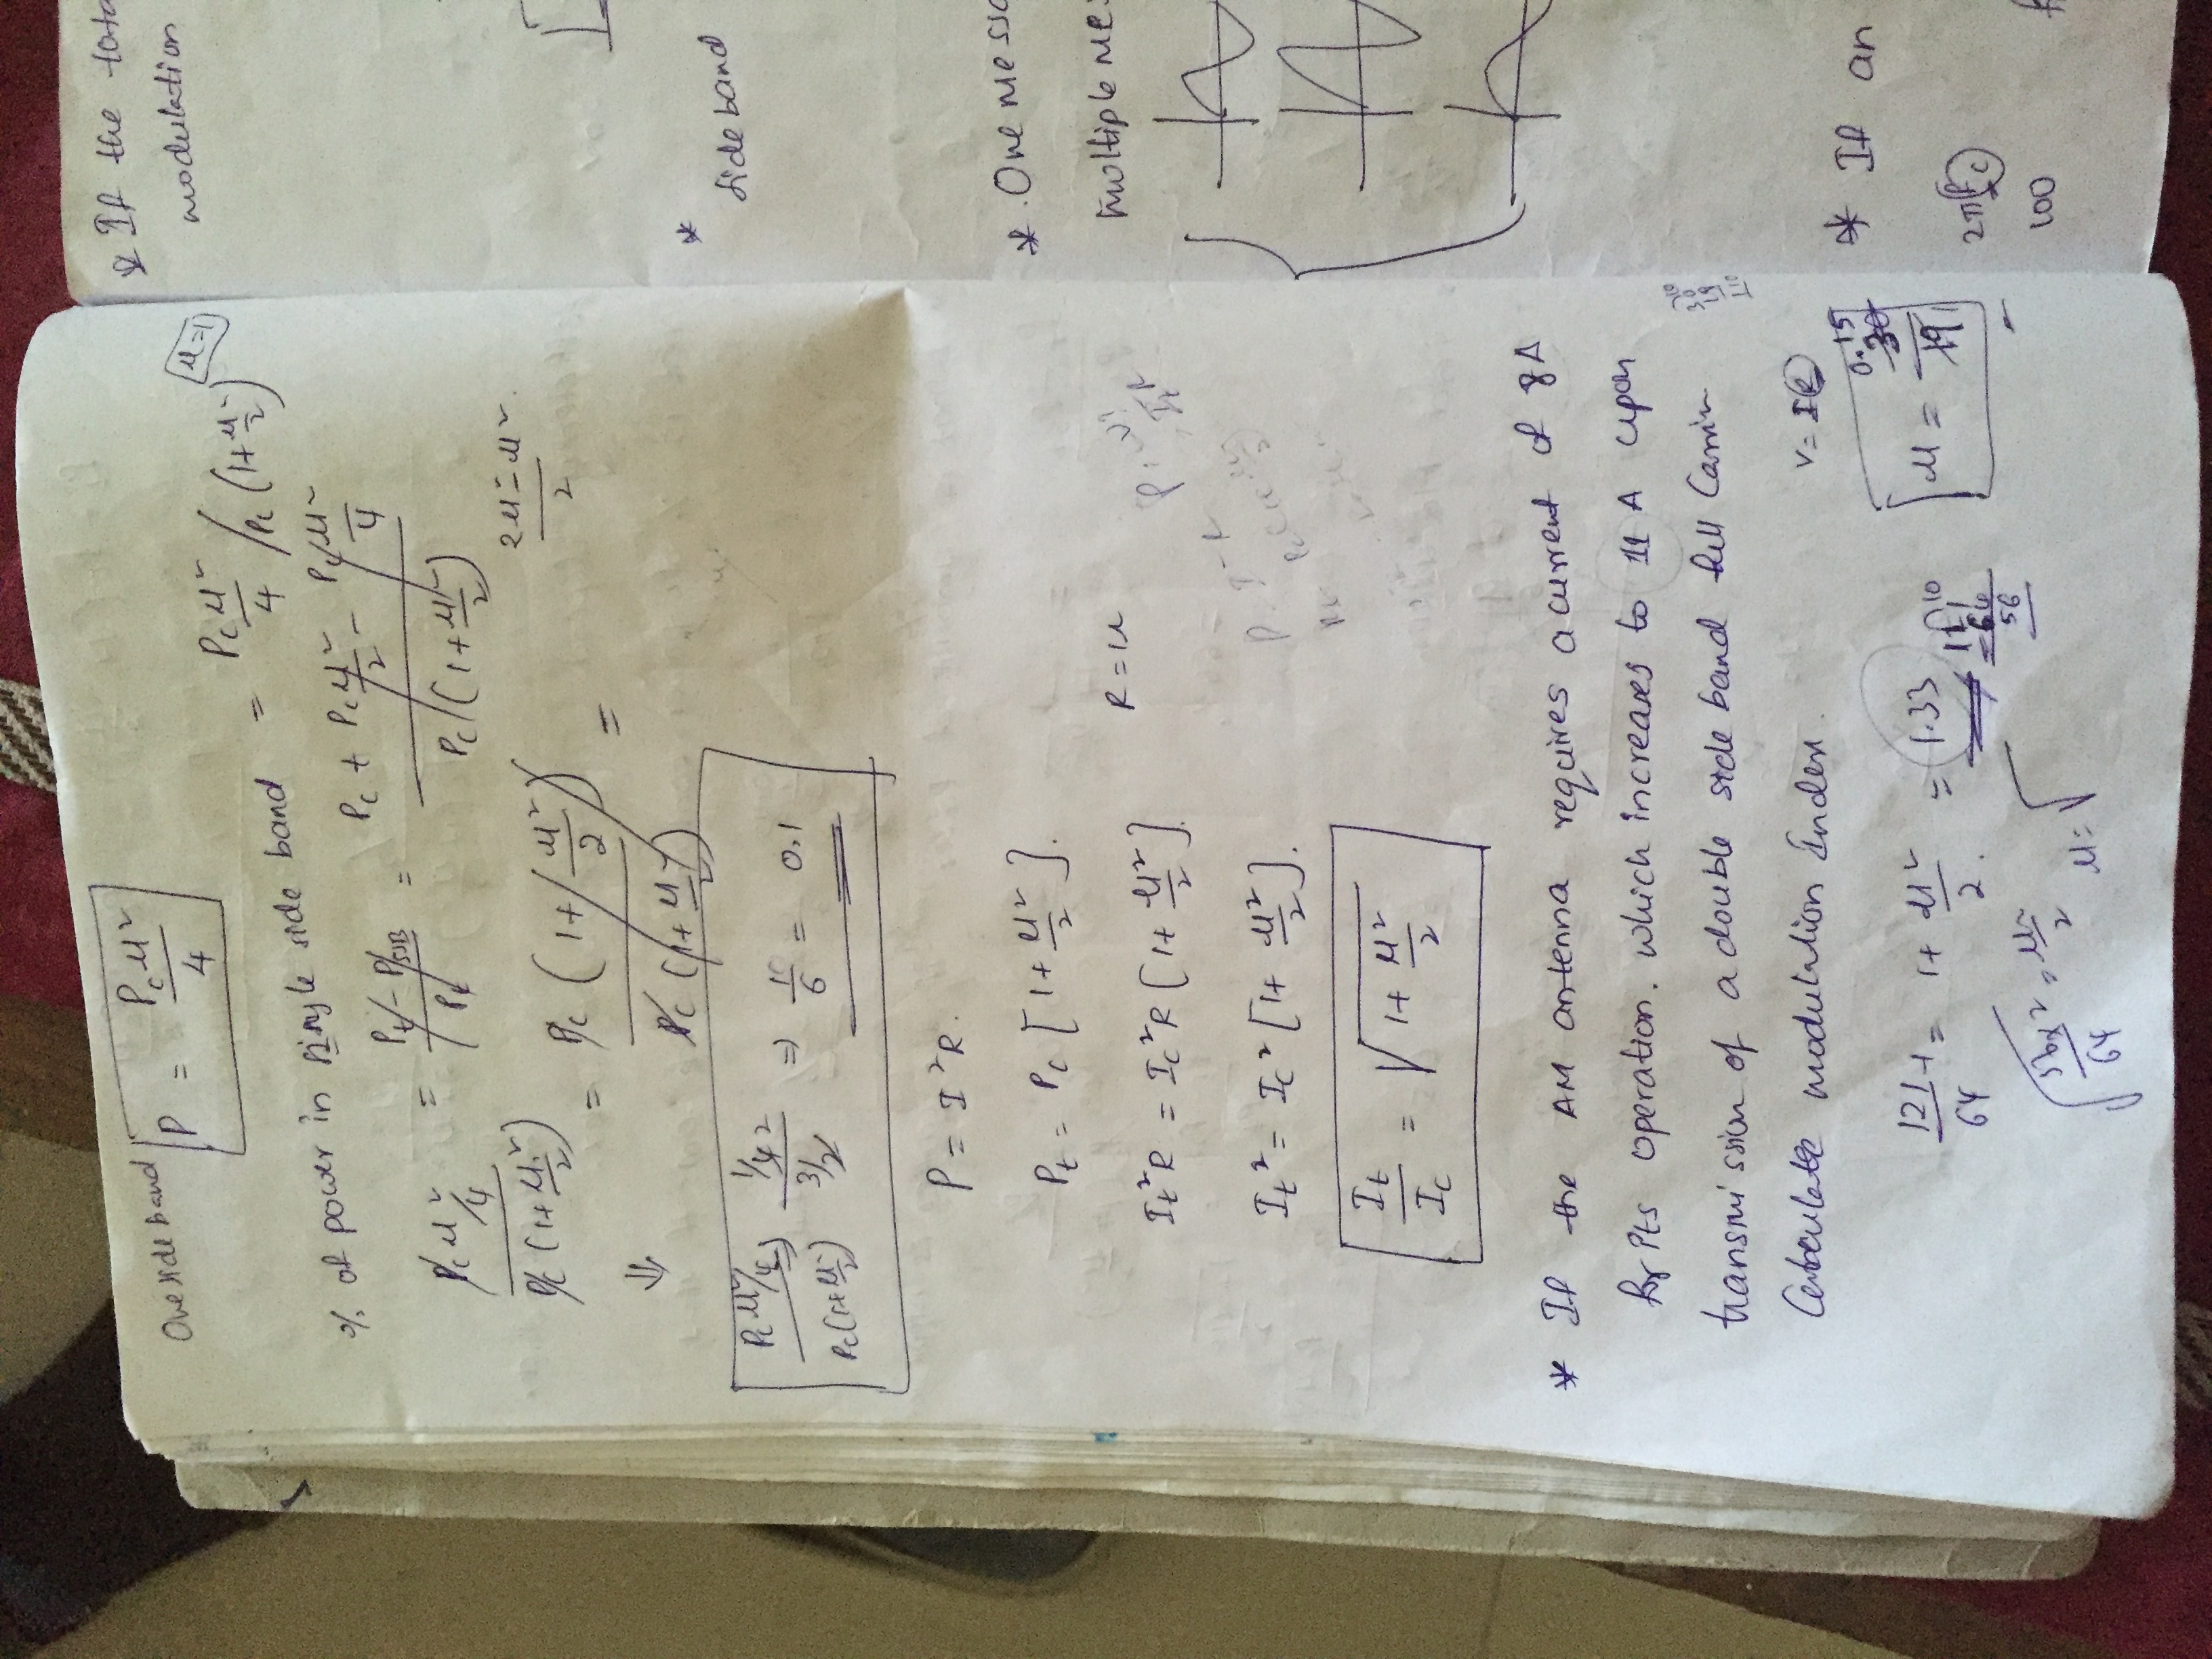 One side band P = Pcμ²/4
μ=1
% of power in single side band = Pcμ²/4 / Pc(1+μ²/2)
= Pt - PSSB / Pt = Pc + Pcμ²/2 - Pcμ²/4 / Pc(1+μ²/2)
Pcμ²/4 / Pc(1+μ²/2)
2μ²-μ² / 2
= Pc(1+μ²/2) / Pc(1+μ²/2) =
⇓
Pcμ²/4 / Pc(1+μ²/2) ⇒ 1/42 / 3/2 ⇒ 10/6 = 0.1
P = I²R.
Pt = Pc [1+μ²/2].
R = μ
It²R = Ic²R [1+μ²/2].
It² = Ic² [1+μ²/2].
It/Ic = √1+μ²/2
* If the AM antenna requires a current of 8A
for its operation. which increases to 11 A upon
transmission of a double side band full Carrier
Calculate modulation Index.
V = IR
121/64 -1 = 1+μ²/2. = 1.33
121
-64
56
μ = 0.15 30/19
√56x2/64 = μ²/2 μ = √
* If the tota
modulation
*
Side band
* One messa
multiple mes
* If an
2π fc
100